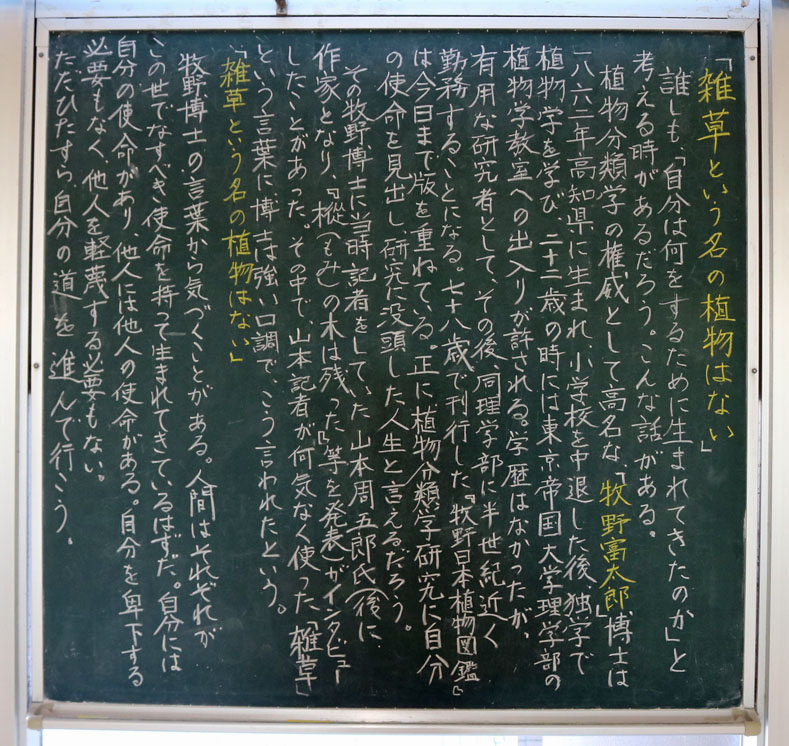 「雑草という名の植物はない」
誰しも「自分は何をするために生まれてきたのか」と
考える時があるだろう。こんな話がある。
植物分類学の権威として高名な「牧野富太郎」博士は
一八六二年高知県に生まれ、小学校を中退した後、独学で
植物学を学び、二十二歳の時には東京帝国大学理学部の
植物学教室への出入りが許される。学歴はなかったが、
有用な研究者として、その後、同理学部に半世紀近く
勤務することになる。七十八歳で刊行した『牧野日本植物図鑑』
は今日まで版を重ねている。正に植物分類学研究に自分
の使命を見出し、研究に没頭した人生と言えるだろう。
その牧野博士に当時記者をしていた山本周五郎氏(後に
作家となり、『樅(もみ)の木は残った』等を発表)がインタビュー
したことがあった。その中で、山本記者が何気なく使った「雑草」
という言葉に博士は強い口調で、こう言われたという。
「雑草という名の植物はない」
牧野博士の言葉から気づくことがある。人間はそれぞれが
この世でなすべき使命を持って生まれてきているはずだ。自分には
自分の使命があり、他人には他人の使命がある。自分を卑下する
必要もなく、他人を軽蔑する必要もない。
ただひたすら、自分の道を進んで行こう。